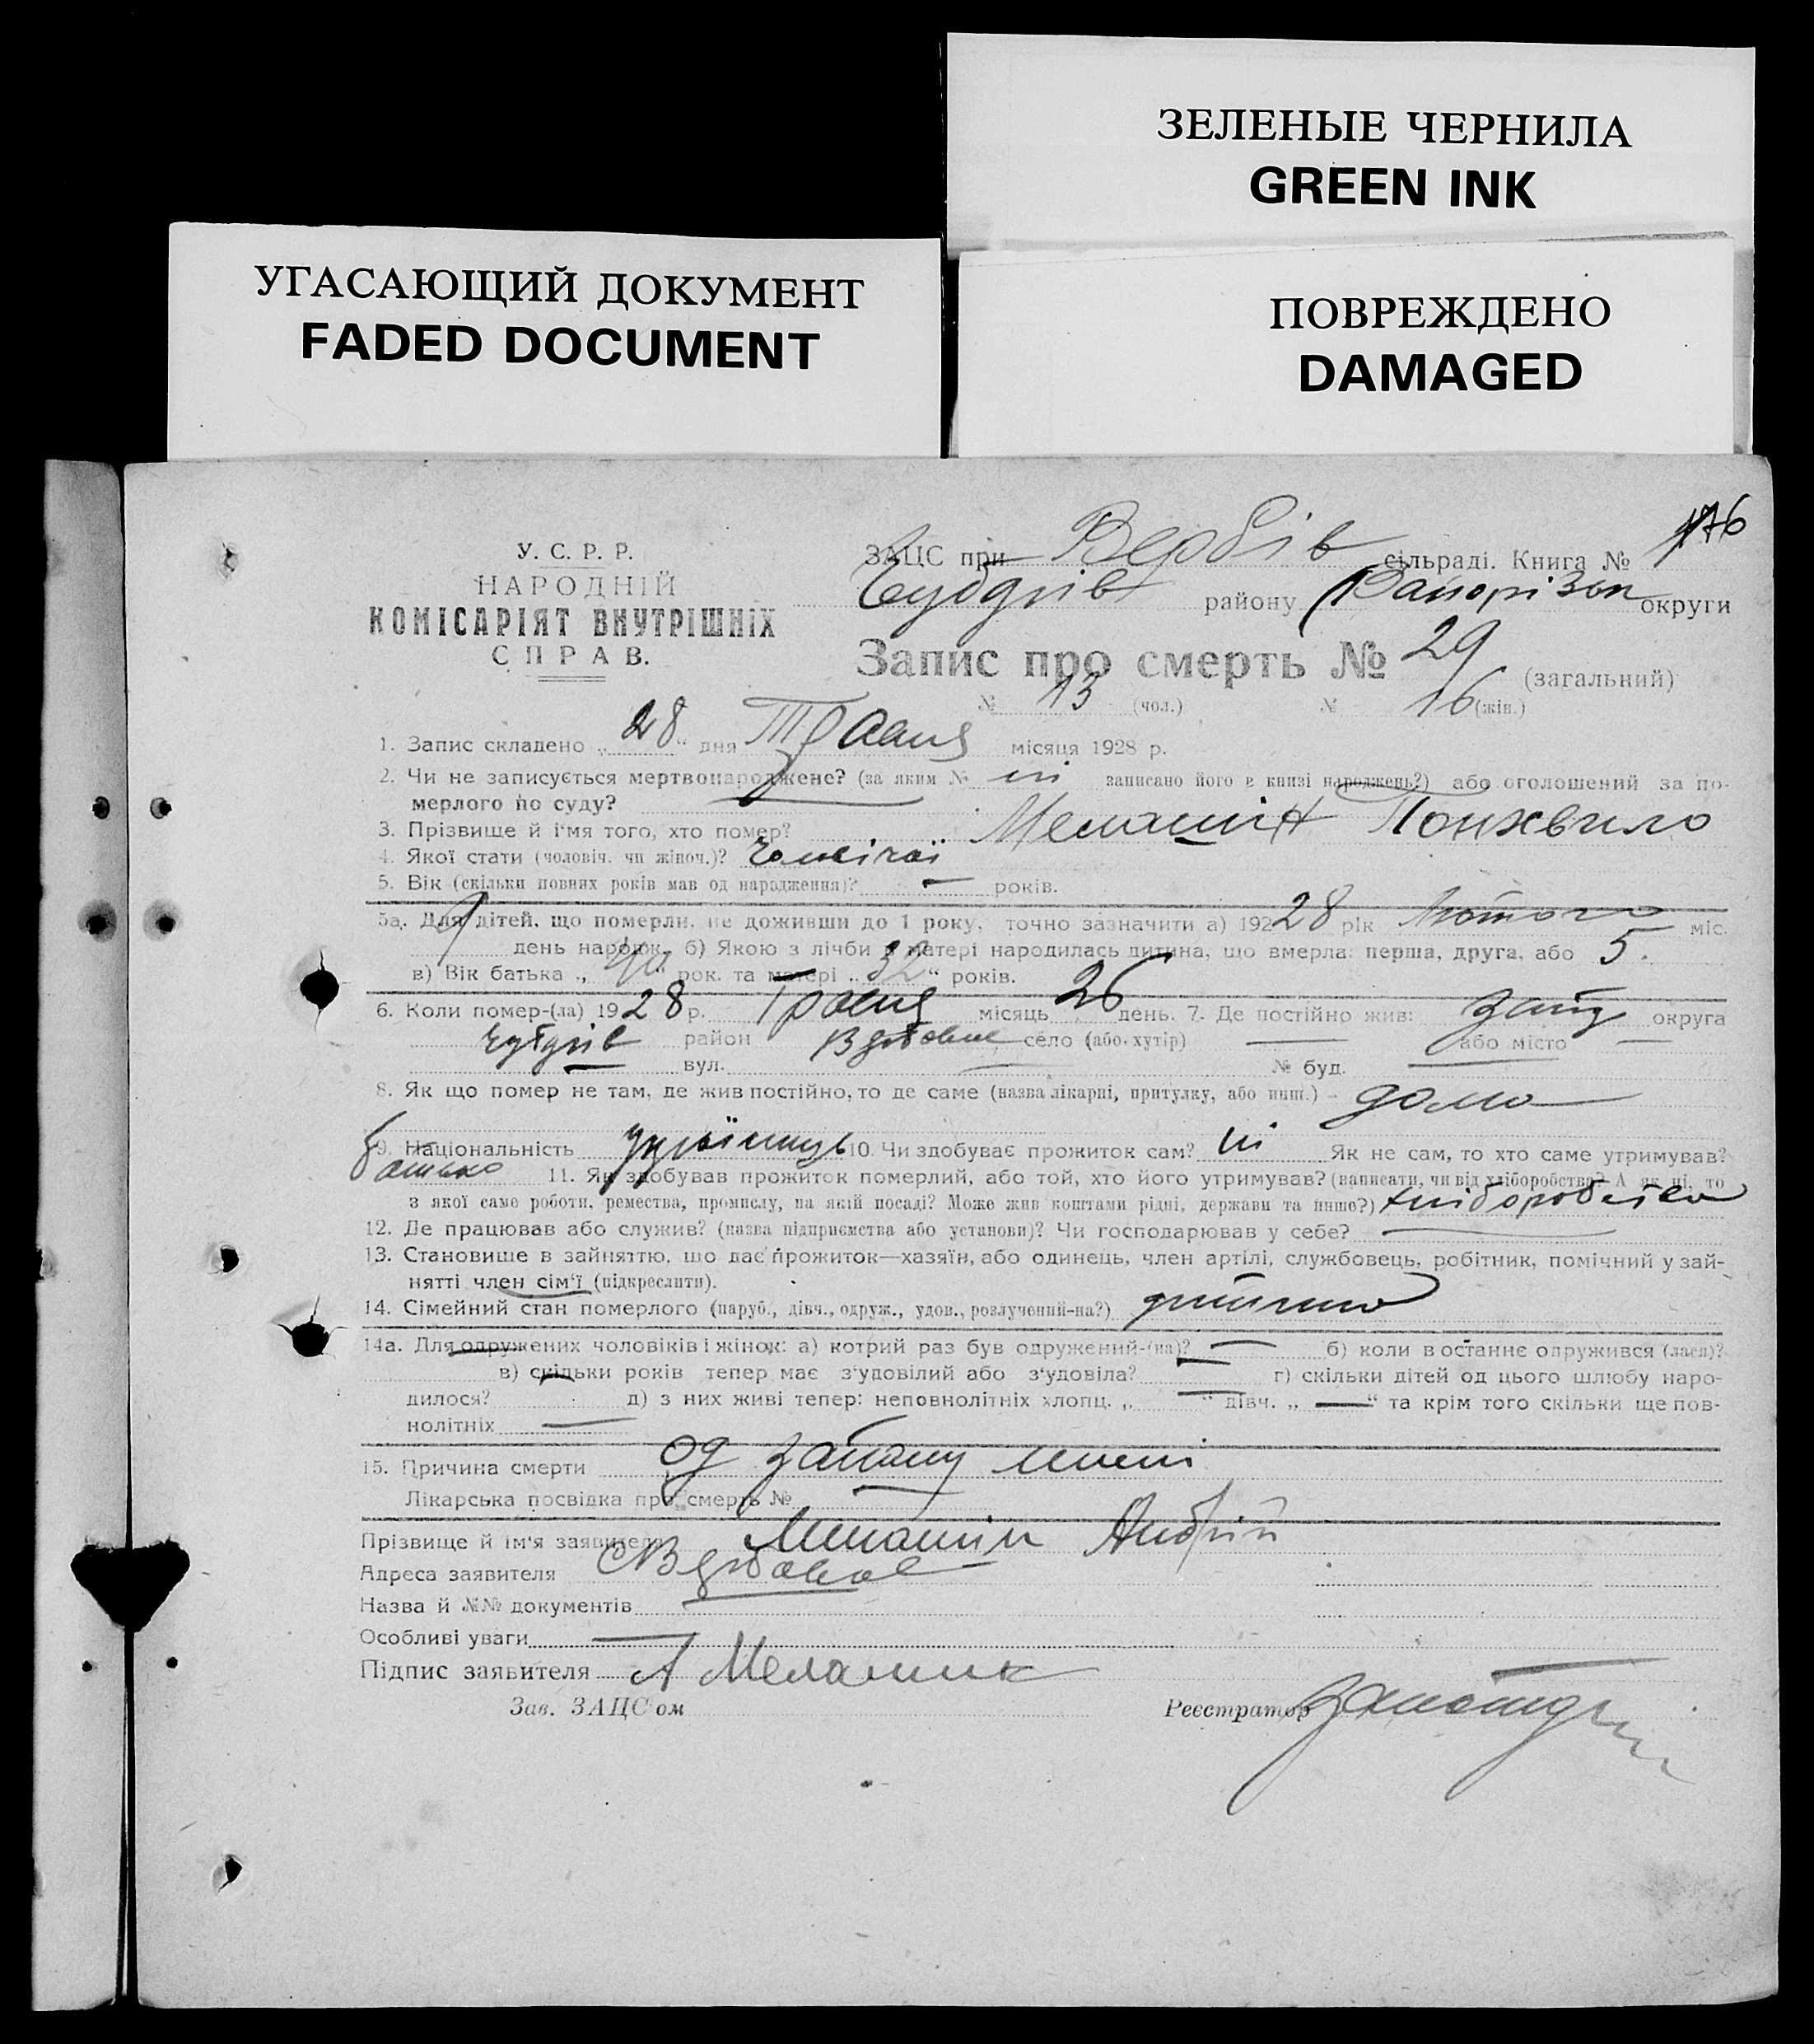 ЗЕЛЕНЫЕ ЧЕРНИЛА
GREEN INK
УГАСАЮЩИЙ ДОКУМЕНТ
FADED DOCUMENT
ПОВРЕЖДЕНО
DAMAGED
У. С. Р. Р.
НАРОДНІЙ
КОМІСАРІЯТ ВНУТРІШНІХ
СПРАВ.
ЗАЦС при Вербів сільраді. Книга №
району округи
Запис про смерть № 29 (загальний)
№ 13 (чол.) № 16 (жін.)
1. Запис складено „28“ дня Травня місяця 1928 р.
2. Чи не записується мертвонароджене? (за яким № ні записано його в книзі народжень?) або оголошений за по-
мерлого по суду?
3. Прізвище й ім'я того, хто помер?
4. Якої стати (чоловіч. чи жіноч.)?
5. Вік (скільки повних років мав од народження)? — років.
5а. Для дітей, що померли, не доживши до 1 року, точно зазначити а) 1928 рік Лютого міс.
день народж. б) Якою з лічби в матері народилась дитина, що вмерла: перша, друга, або 5.
в) Вік батька „ “ рок. та матері „32“ років.
6. Коли помер-(ла) 1928 р. Травня місяць 26 день. 7. Де постійно жив: Запу округа
район село (або хутір) — або місто —
вул. — № буд. —
8. Як що помер не там, де жив постійно, то де саме (назва лікарні, притулку, або инш.) - дома
9. Національність українець 10. Чи здобуває прожиток сам? ні Як не сам, то хто саме утримував?
батько 11. Як здобував прожиток померлий, або той, хто його утримував? (написати, чи від хліборобства? А як ні, то
з якої саме роботи, ремества, промислу, на якій посаді? Може жив коштами рідні, держави та инше?)
12. Де працював або служив? (назва підприємства або установи)? Чи господарював у себе? —
13. Становише в зайняттю, що дає прожиток—хазяїн, або одинець, член артілі, службовець, робітник, помічний у зай-
нятті член сім'ї (підкреслити).
14. Сімейний стан померлого (паруб., дівч., одруж., удов., розлучений-на?) дитина
14а. Для одружених чоловіків і жінок: а) котрий раз був одружений-(на)? — б) коли востаннє одружився (лася)?
— в) скільки років тепер має з'удовілий або з'удовіла? — г) скільки дітей од цього шлюбу наро-
дилося? д) з них живі тепер: неповнолітніх хлопц. „—“ дівч. „—“ та крім того скільки ще пов-
нолітніх —
15. Причина смерти од
Лікарська посвідка про смерть № —
Прізвище й ім'я заявителя Андрій
Адреса заявителя
Назва й №№ документів
Особливі уваги —
Підпис заявителя А Мелашик
Зав. ЗАЦС'ом Реєстратор